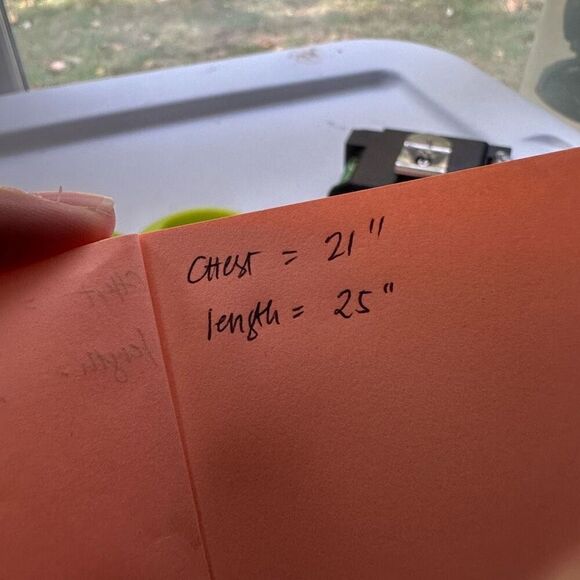 CHest = 21"
length = 25"